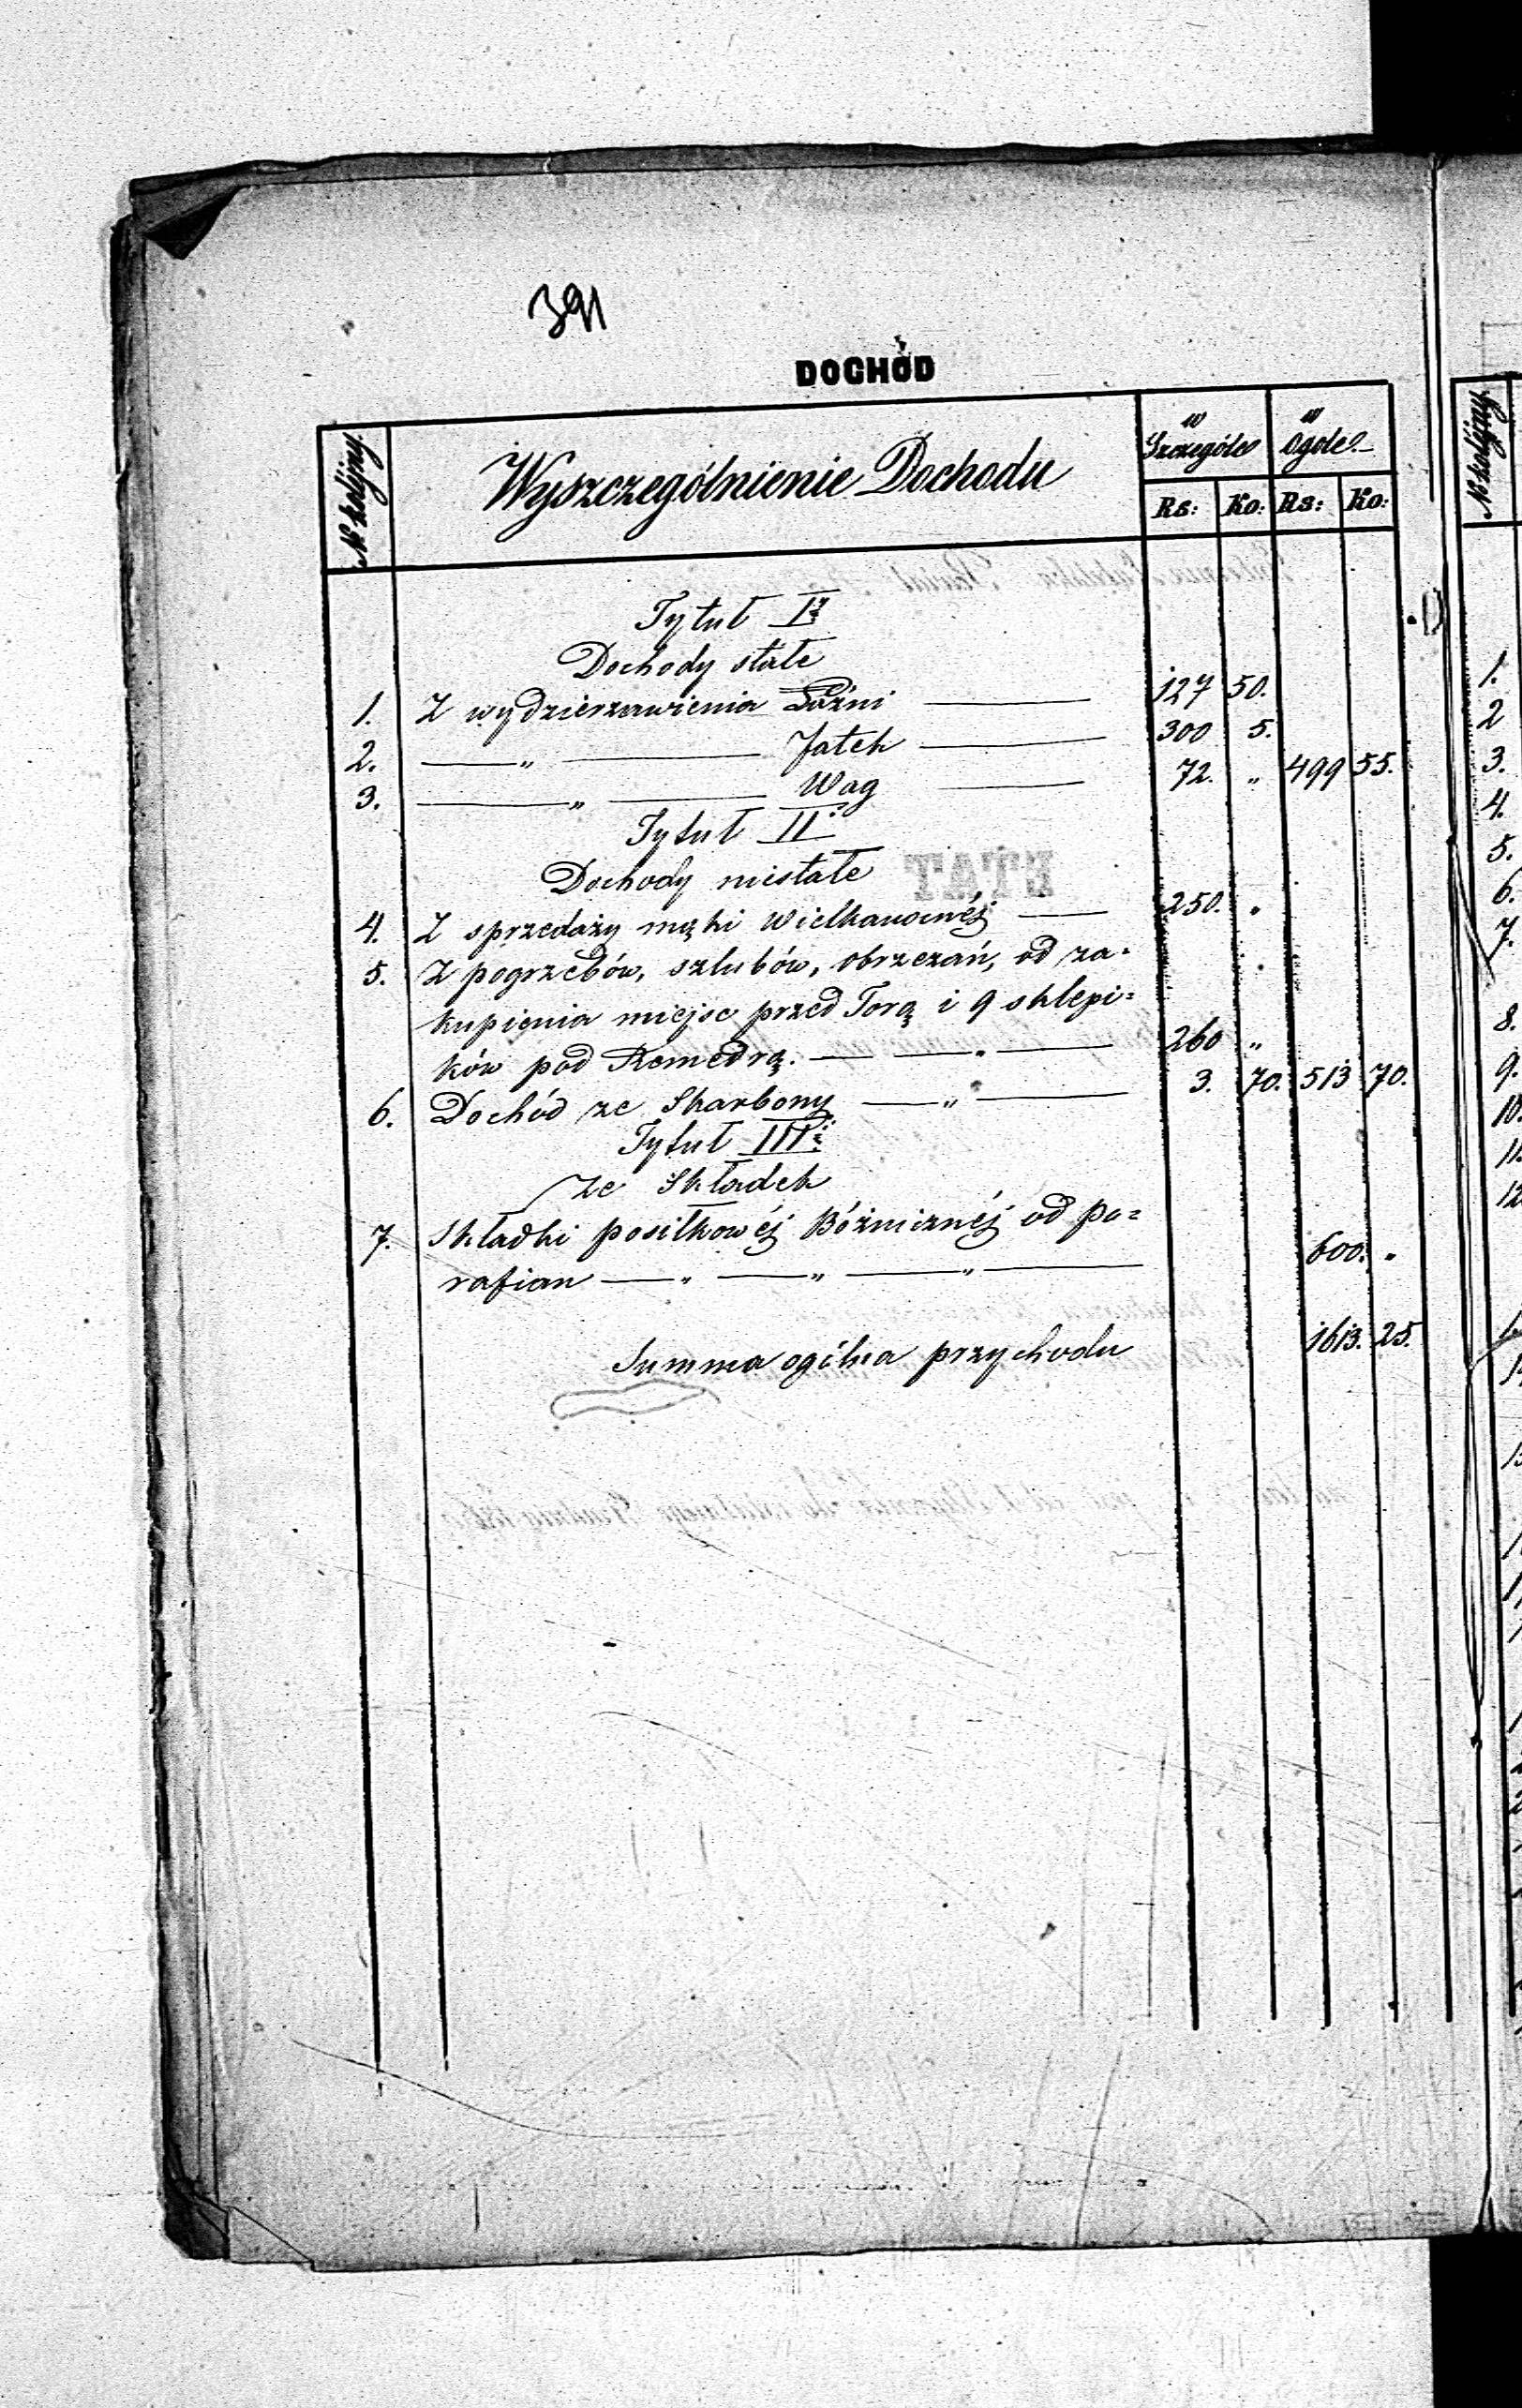 391
DOCHÓD
№ kolejny. Wyszczególnienie Dochodu w Szczególe w Ogóle.
Rs: Ko: Rs: Ko:
Tytuł I
Dochody stałe
1. Z wydzierzawienia Łaźni 127 50.
2. " Jatek 300 5.
3. " Wag 72. " 499 55.
Tytuł II
Dochody niestałe
4. Z sprzedaży mąki Wielkanocnéj 250. "
5. Z pogrzebów, szlubów, obrzezań, od za=
kupienia miejsc przed Torą i 9 sklepi=
ków pod 260 "
6. Dochód ze Skarbony " 3. 70. 513 70.
Tytuł III
Ze Składek
7. Składki posiłkowéj Bóżnicznéj od pa=
rafian " " " 600. "
Summa ogólna przychodu 1613. 25.
ETAT
№ kolejny
1.
2
3.
4.
5.
6.
7.
8.
9.
10.
11.
12